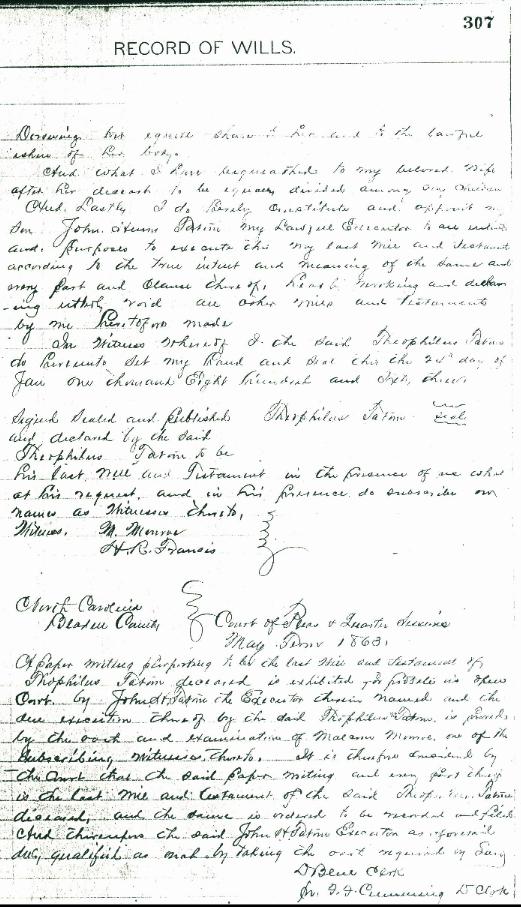 307
RECORD OF WILLS.
equal share to her and to the lawful
of her body.
And what I have bequeathed to my beloved Wife
after her decease to be equally divided among my children
And Lastly I do hereby Constitute and appoint my
Son John Tatom my Lawful Executor to are intents
and purposes to execute this my last Will and Testament
according to the true intent and meaning of the same and
every part and Clause thereof, hereby revoking and declar
-ing utterly void are other Wills and Testaments
by me heretofore made
In Witness Whereof I the said Theophilus Tatom
do hereunto Set my hand and seal this the day of
Jan one thousand Eight hundred and Sixty three
Signed Sealed and published Theophilus Tatom seal
and declared by the said
Theophilus Tatom to be
his last Will and Testament in the presence of us who
at his request, and in his presence do subscribe our
names as Witnesses thereto,
Witness. M. Monroe
H. R. Francis
North Carolina
Bladen County Court of Pleas & Quarter Sessions
May Term 1863.
A Paper writing purporting to be the last Will and testament of
Theophilus Tatom deceased is exhibited for probate in open
Court by John H Tatom the Executor therein named and the
due execution thereof by the said Theophilus Tatom is proved
by the oath and examination of Malcom Monroe, one of the
Subscribing Witnesses thereto. It is therefore considered by
the Court that the said Paper writing and every part thereof
is the last Will and testament of the said Tatom
deceased, and the same is ordered to be recorded and filed
And thereupon the said John H Tatom Executor as aforesaid
duly qualified as such by taking the oath required by Law
D Blue Clerk
Cumming D Clerk